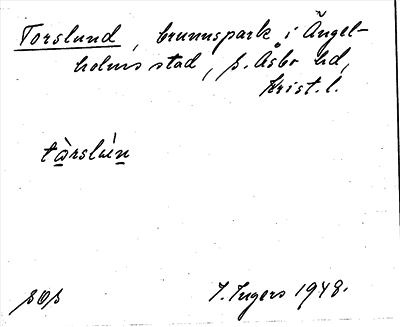 Torslund, brunnspark i Ängel-
holms stad, s. Åsbo hd,
Krist. l.
tòrslún
sOs
I. Ingers 1948.